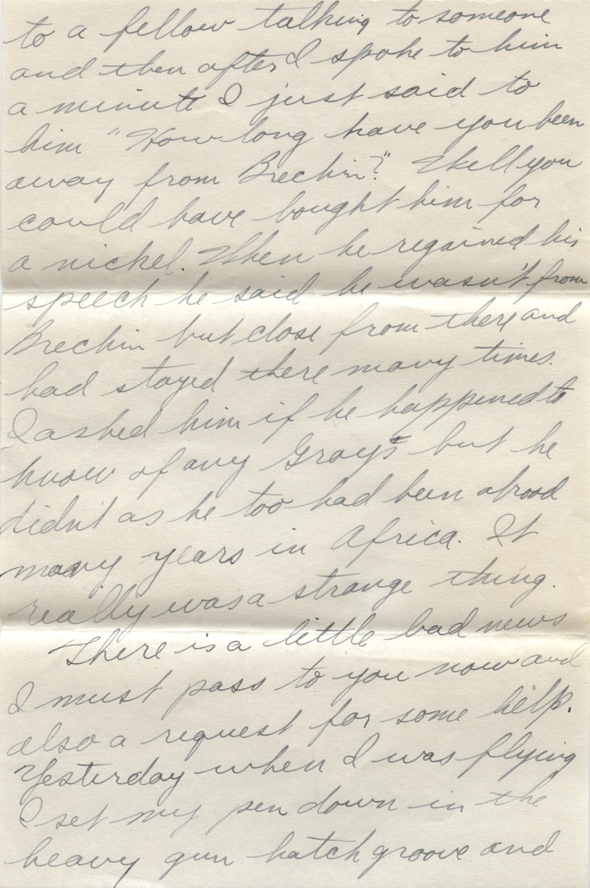 to a fellow talking to someone
and then after I spoke to him
a minute I just said to
him "How long have you been
away from Brechin?" Well you
could have bought him for
a nickel. When he regained his
speech he said he wasn't from
Brechin but close from there and
had stayed there many times.
I asked him if he happened to
know of any Grays but he
didn't as he too had been abroad
many years in Africa. It
really was a strange thing.
There is a little bad news
I must pass to you now and
also a request for some help.
Yesterday when I was flying
I set my pen down in the
heavy gun hatch groove and